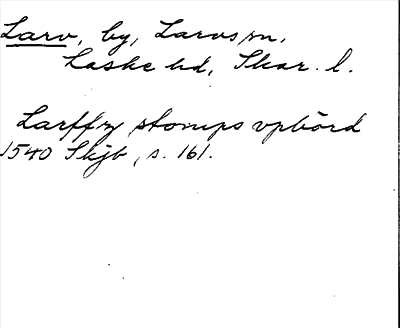 Larv, by, Larvs sn,
Laske hd, Skar. l.
Larffz stomps vpbörd
1540 Skjb, s. 161.